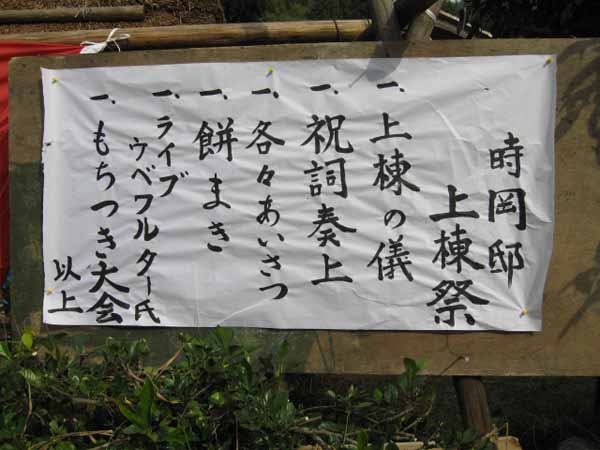 時岡邸
上棟祭
一、上棟の儀
一、祝詞奏上
一、各々あいさつ
一、餅まき
一、ライブ
ウベワルター氏
一、もちつき大会
以上